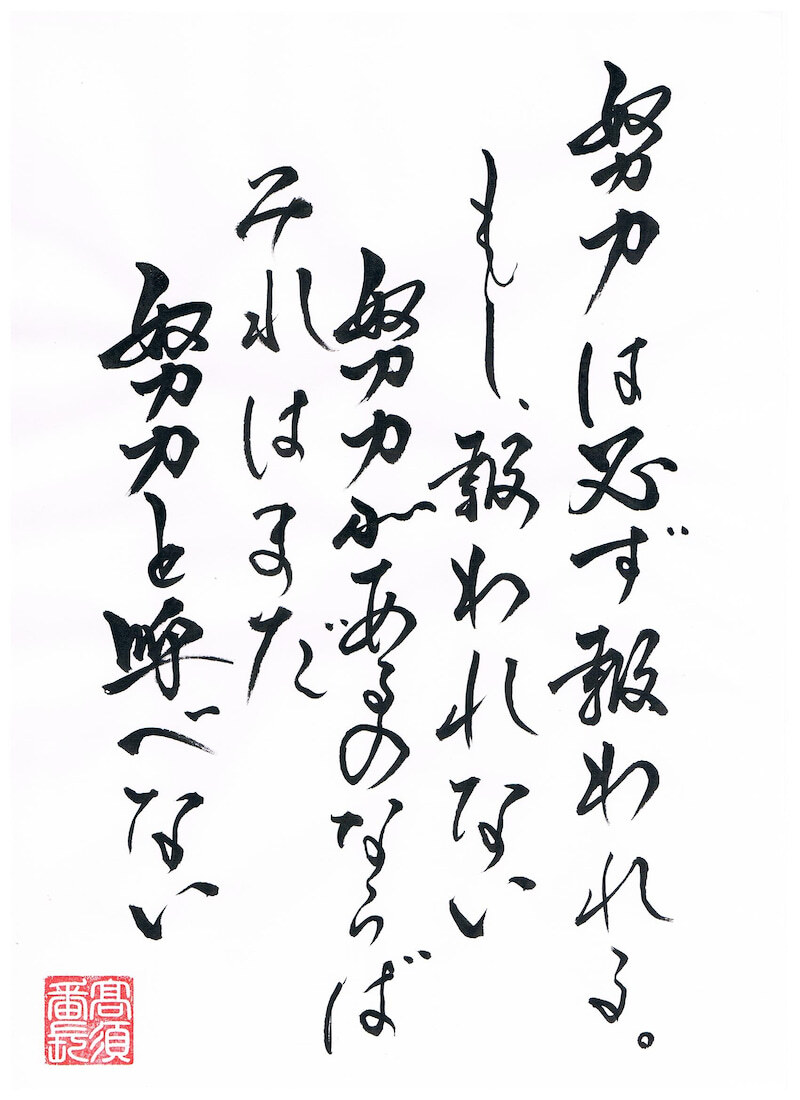 努力は必ず報われる。
もし、報われない
努力があるのならば
それはまだ
努力と呼べない
髙須
番長